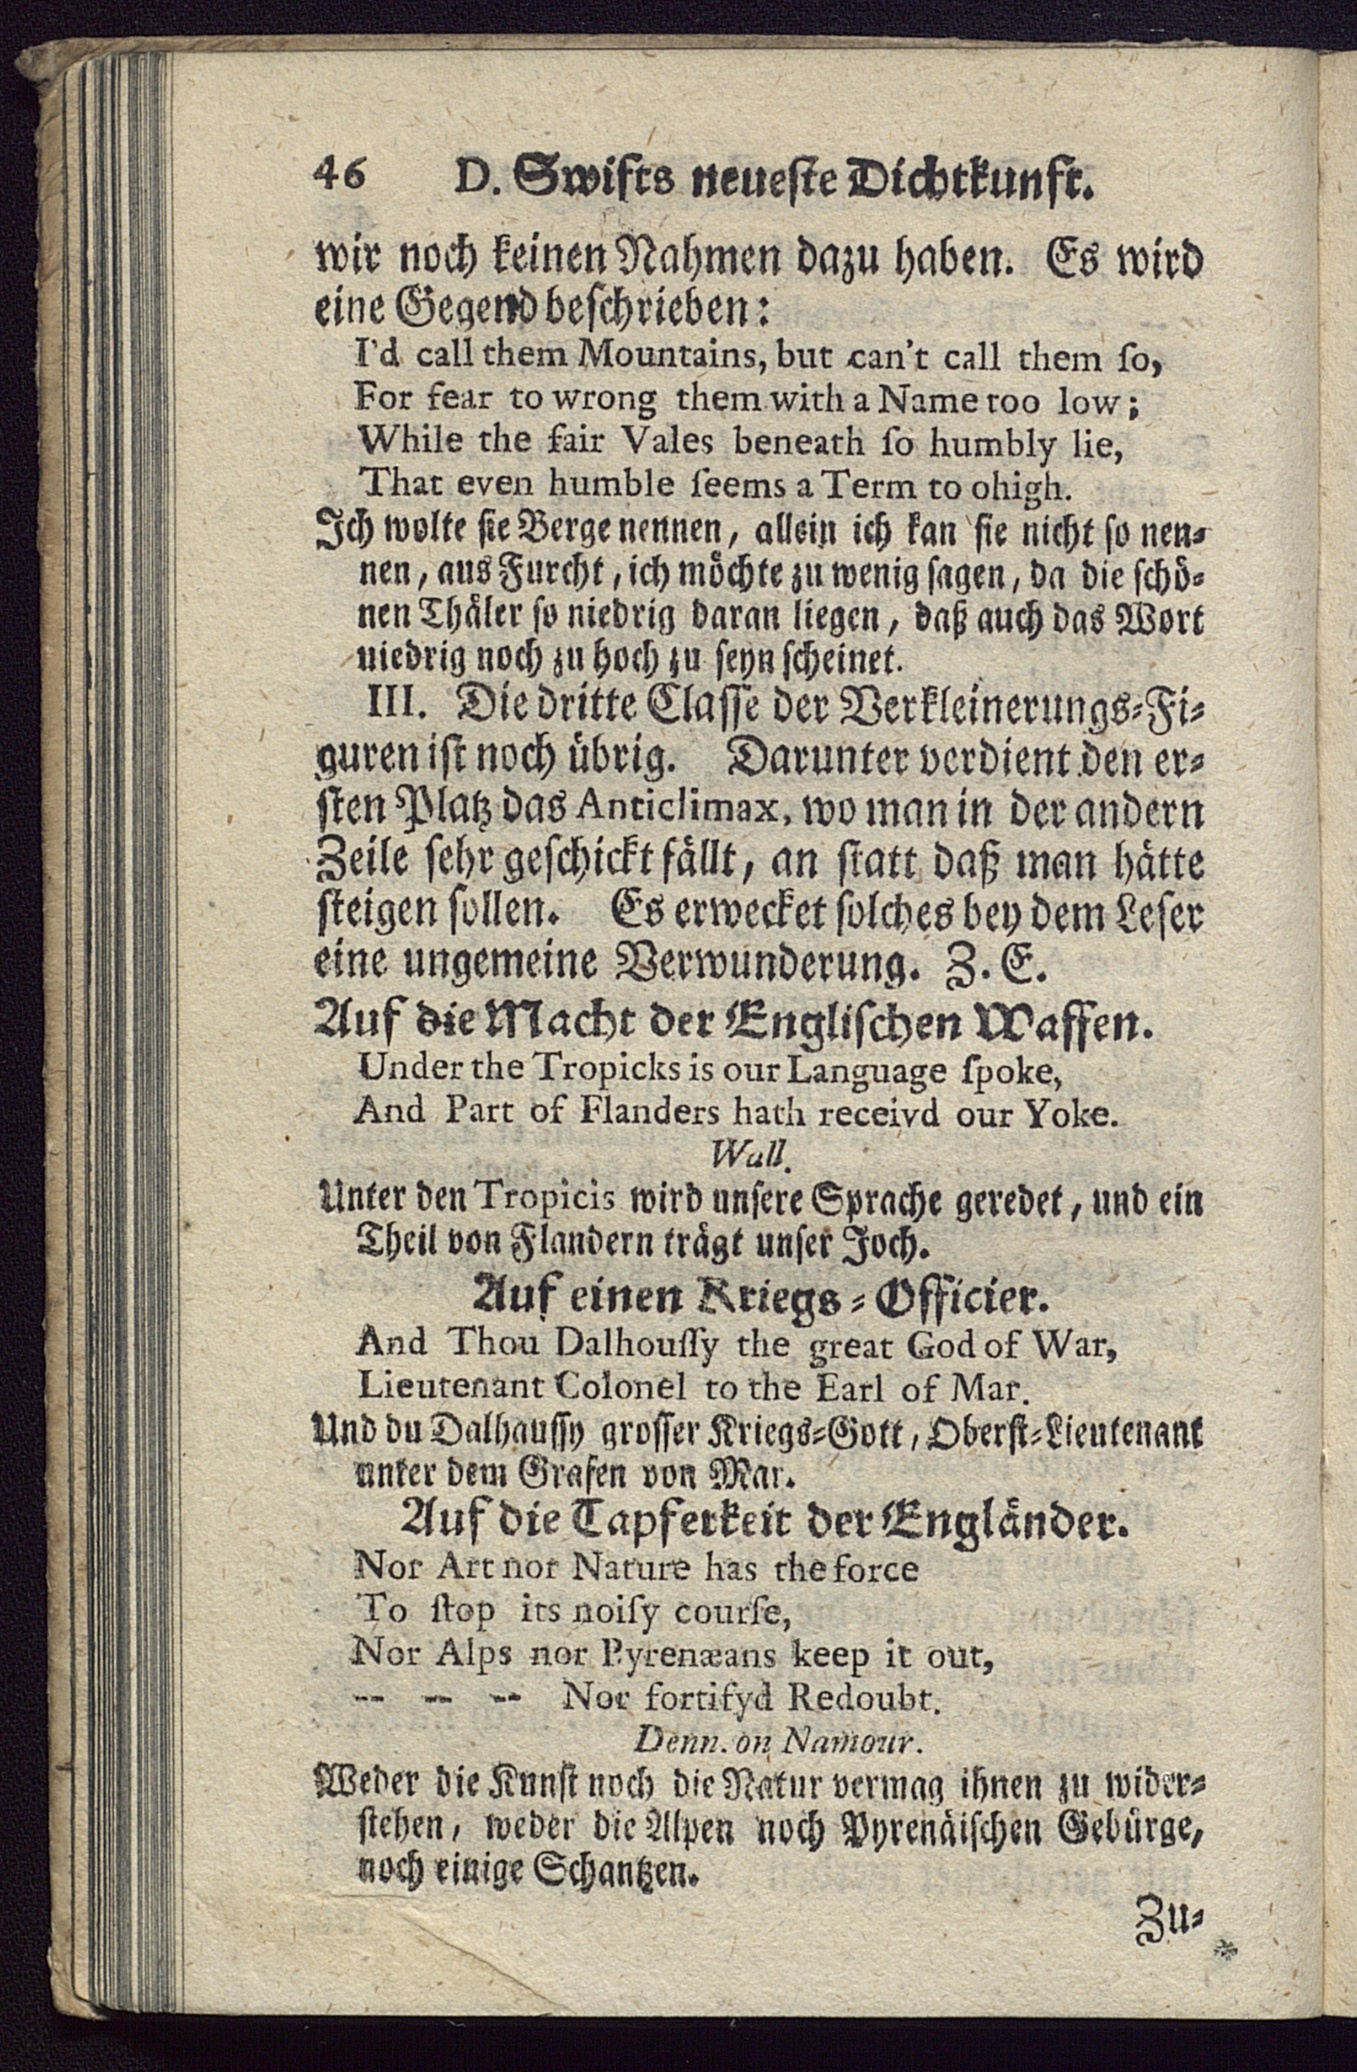 46 D. Swifts neueste Dichtkunst.
wir noch keinen Nahmen dazu haben. Es wird
eine Gegend beschrieben:
I'd call them Mountains, but can't call them ſo,
For fear to wrong them with a Name too low;
While the fair Vales beneath ſo humbly lie,
That even humble ſeems a Term to ohigh.
Ich wolte sie Berge nennen, allein ich kan sie nicht so nen-
nen, aus Furcht, ich möchte zu wenig sagen, da die schö-
nen Thäler so niedrig daran liegen, daß auch das Wort
niedrig noch zu hoch zu seyn scheinet.
III. Die dritte Classe der Verkleinerungs-Fi-
guren ist noch übrig. Darunter verdient den er-
sten Platz das Anticlimax, wo man in der andern
Zeile sehr geschickt fällt, an statt daß man hätte
steigen sollen. Es erwecket solches bey dem Leser
eine ungemeine Verwunderung. Z. E.
Auf die Macht der Englischen Waffen.
Under the Tropicks is our Language ſpoke,
And Part of Flanders hath receivd our Yoke.
Wall.
Unter den Tropicis wird unsere Sprache geredet, und ein
Theil von Flandern trägt unser Joch.
Auf einen Kriegs-Officier.
And Thou Dalhouſſy the great God of War,
Lieutenant Colonel to the Earl of Mar.
Und du Dalhaussy grosser Kriegs-Gott, Oberst-Lieutenant
unter dem Grafen von Mar.
Auf die Tapferkeit der Engländer.
Nor Art nor Nature has the force
To ſtop its noiſy courſe,
Nor Alps nor Pyrenæans keep it out,
-- -- -- Nor fortifyd Redoubt.
Denn. on Namour.
Weder die Kunst noch die Natur vermag ihnen zu wider-
stehen, weder die Alpen noch Pyrenäischen Gebürge,
noch einige Schantzen.
Zu-